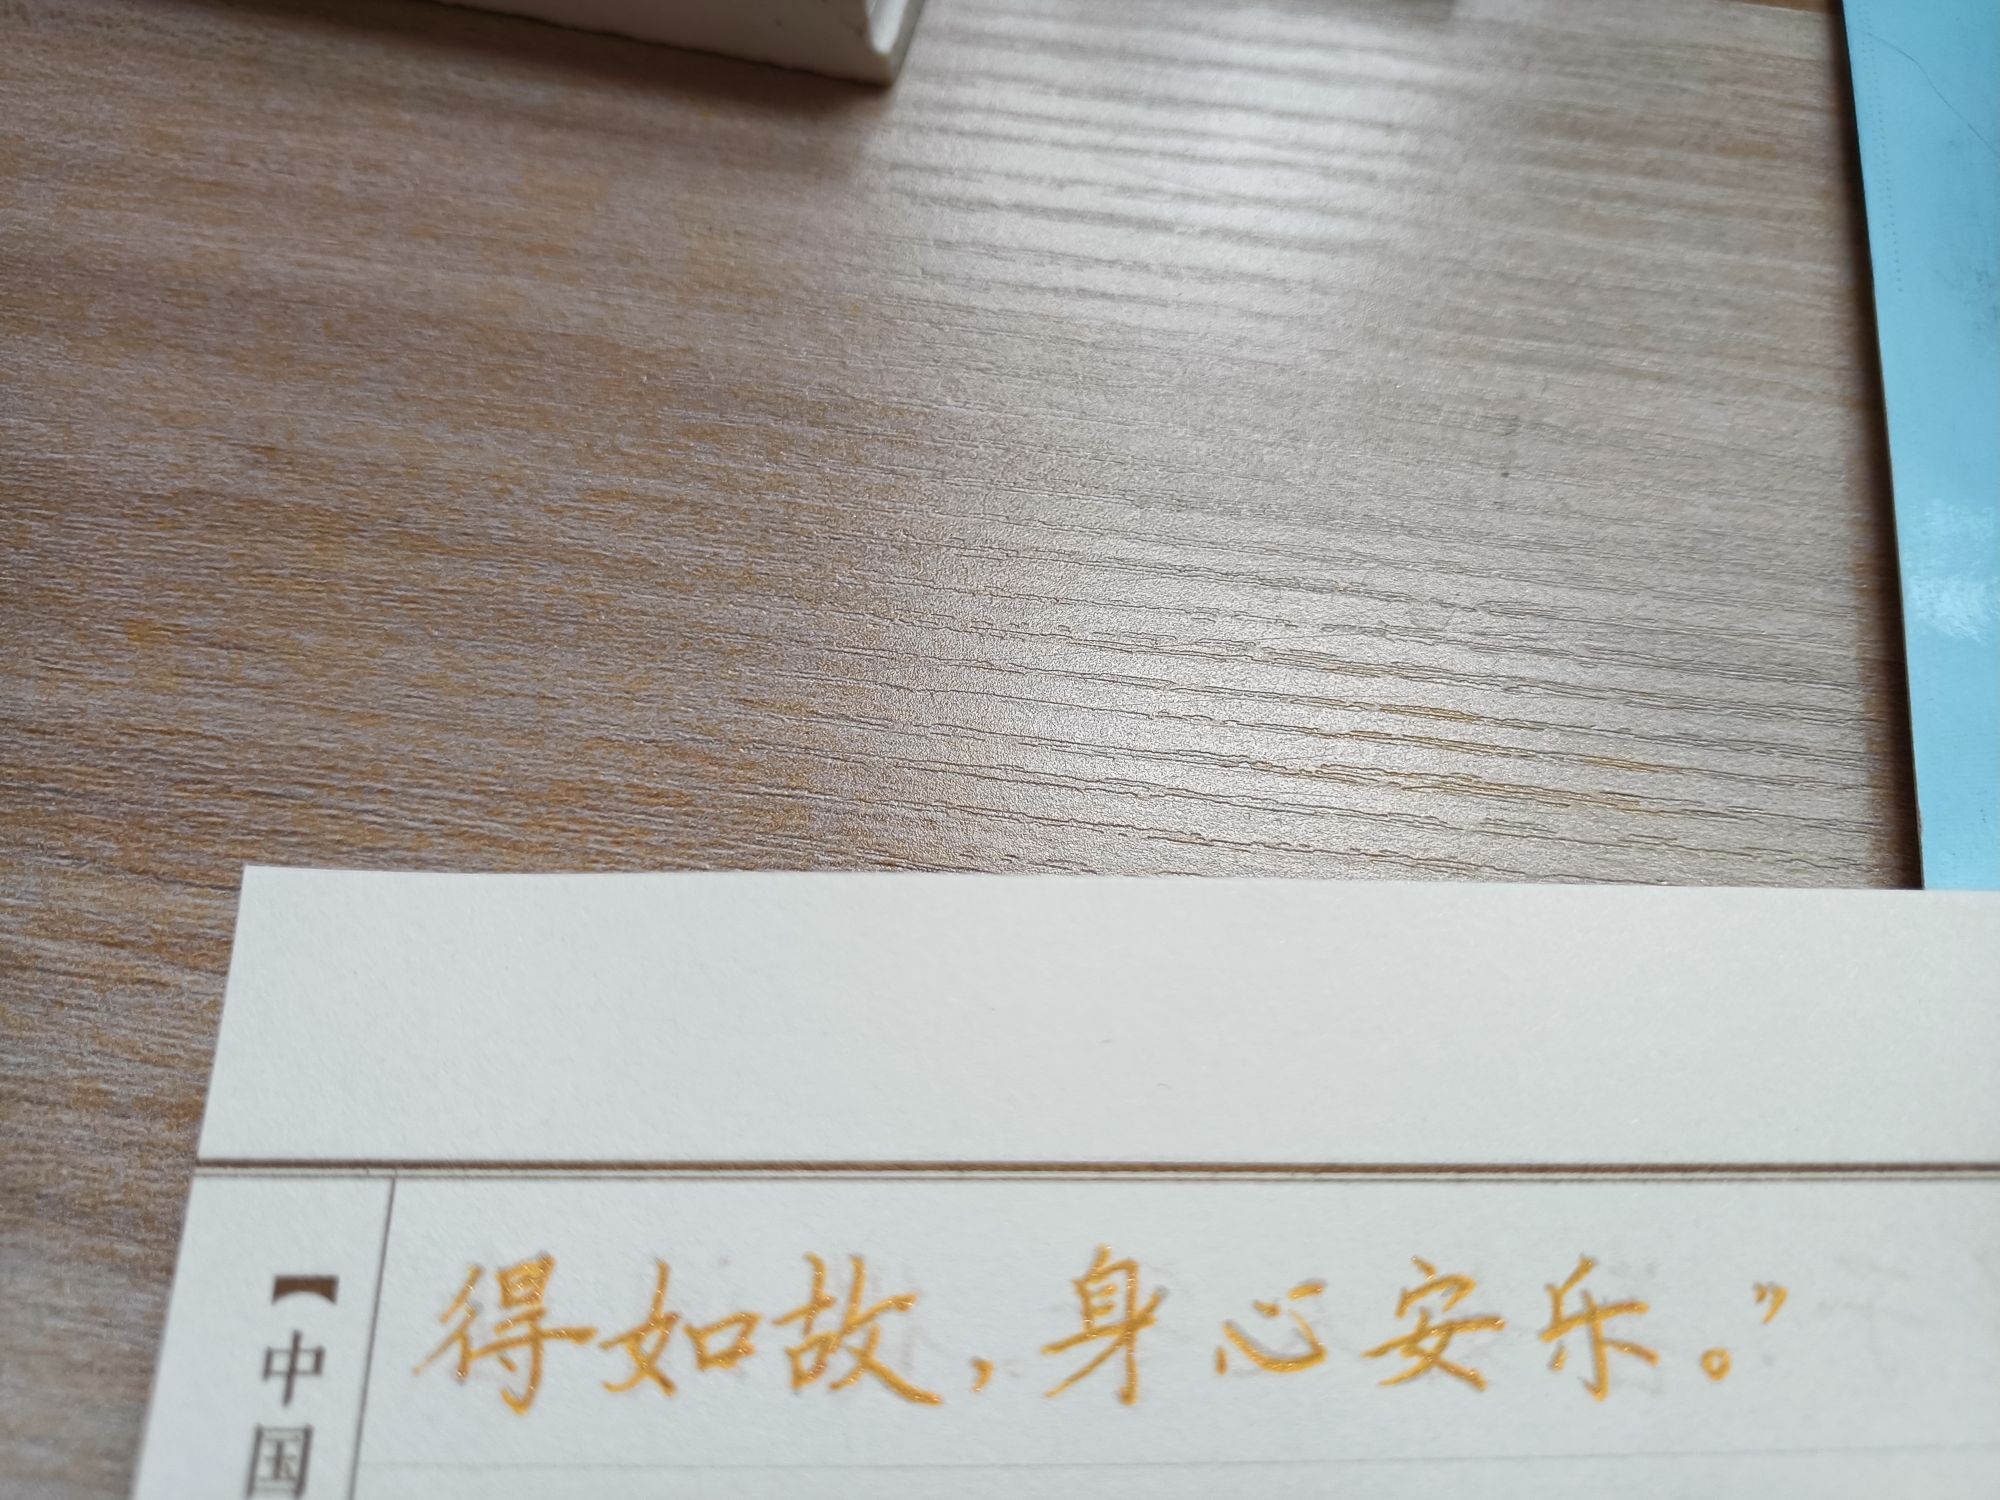 得如故，身心安乐。”
【中国